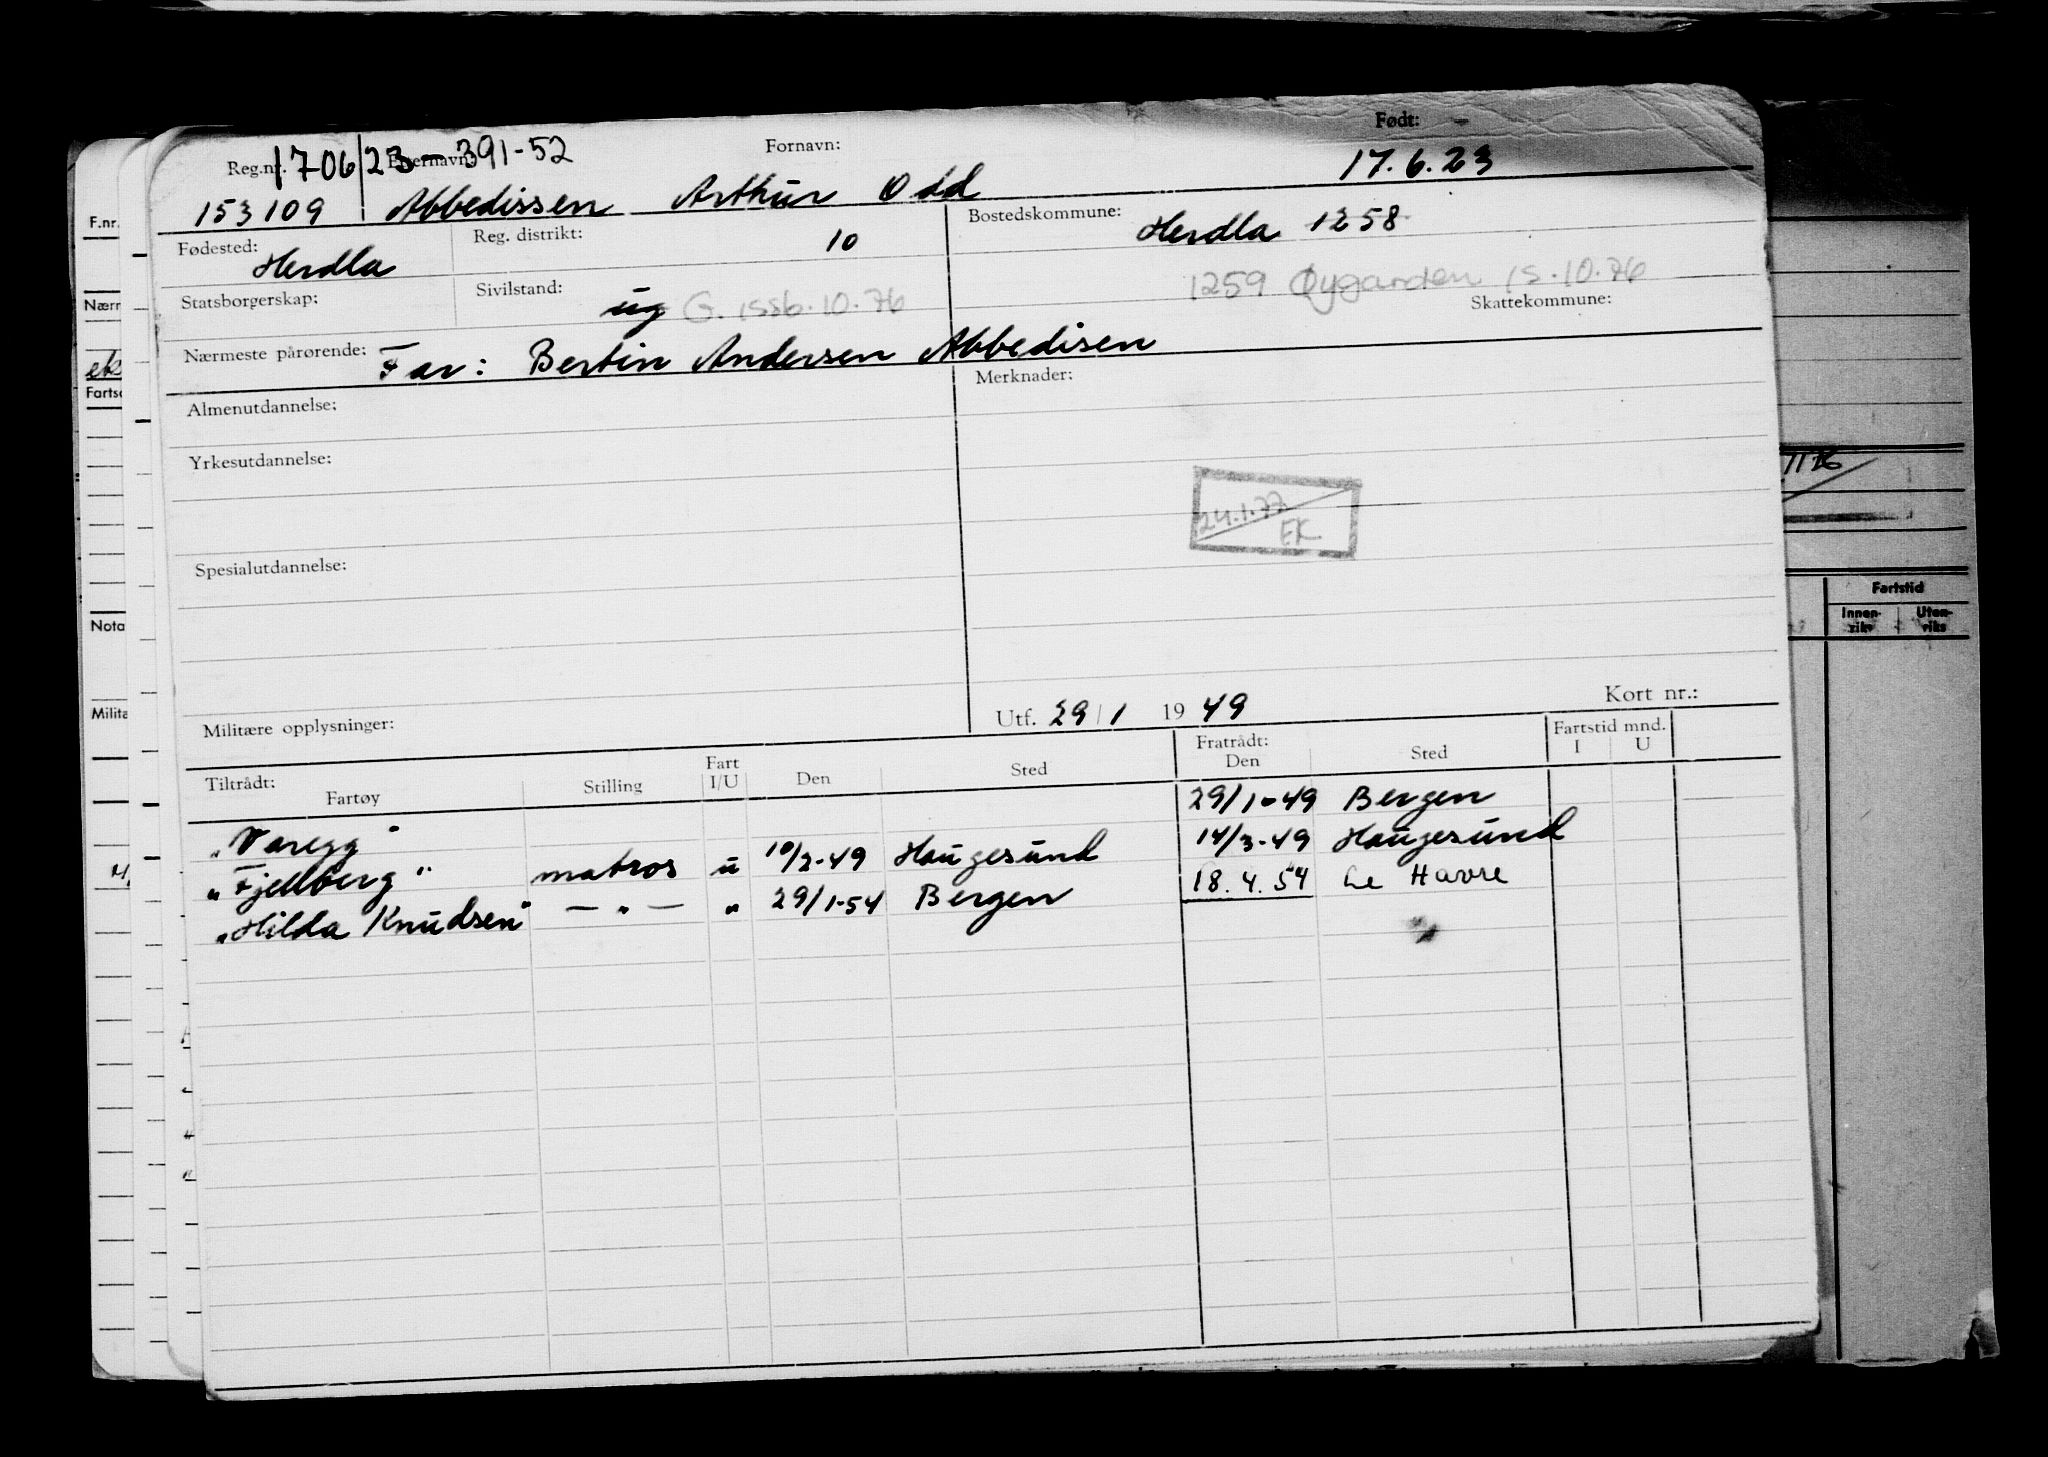 Reg.nr. 1706/23-391-52 Etternavn: Fornavn: Født:
153109 Abbedissen Arthur Odd 17.6.23
Fødested: Herdla Reg. distrikt: 10 Bostedskommune: Herdla 1258
1259 Øygarden 15.10.76
Statsborgerskap: Sivilstand: ug G. Skattekommune:
Nærmeste pårørende: Far: Bertin Andersen Abbedisen
Almenutdannelse: Merknader:
Yrkesutdannelse:
24.1.77
EK
Spesialutdannelse:
Militære opplysninger: Utf. 29/1 1949 Kort nr.:
Tiltrådt: Fratrådt: Fartstid mnd.
Fartøy Stilling Fart I/U Den Sted Den Sted I U
"Varegg" 29/1-49 Bergen
"Fjellberg" matros u 10/2-49 Haugesund 14/3-49 Haugesund
"Hilda Knudsen" — " — " 29/1-54 Bergen 18.4.54 Le Havre
F.nr.
Nærm
Fartsc
Nota
Milita
Fartstid
Innen-
riks
Uten-
riks